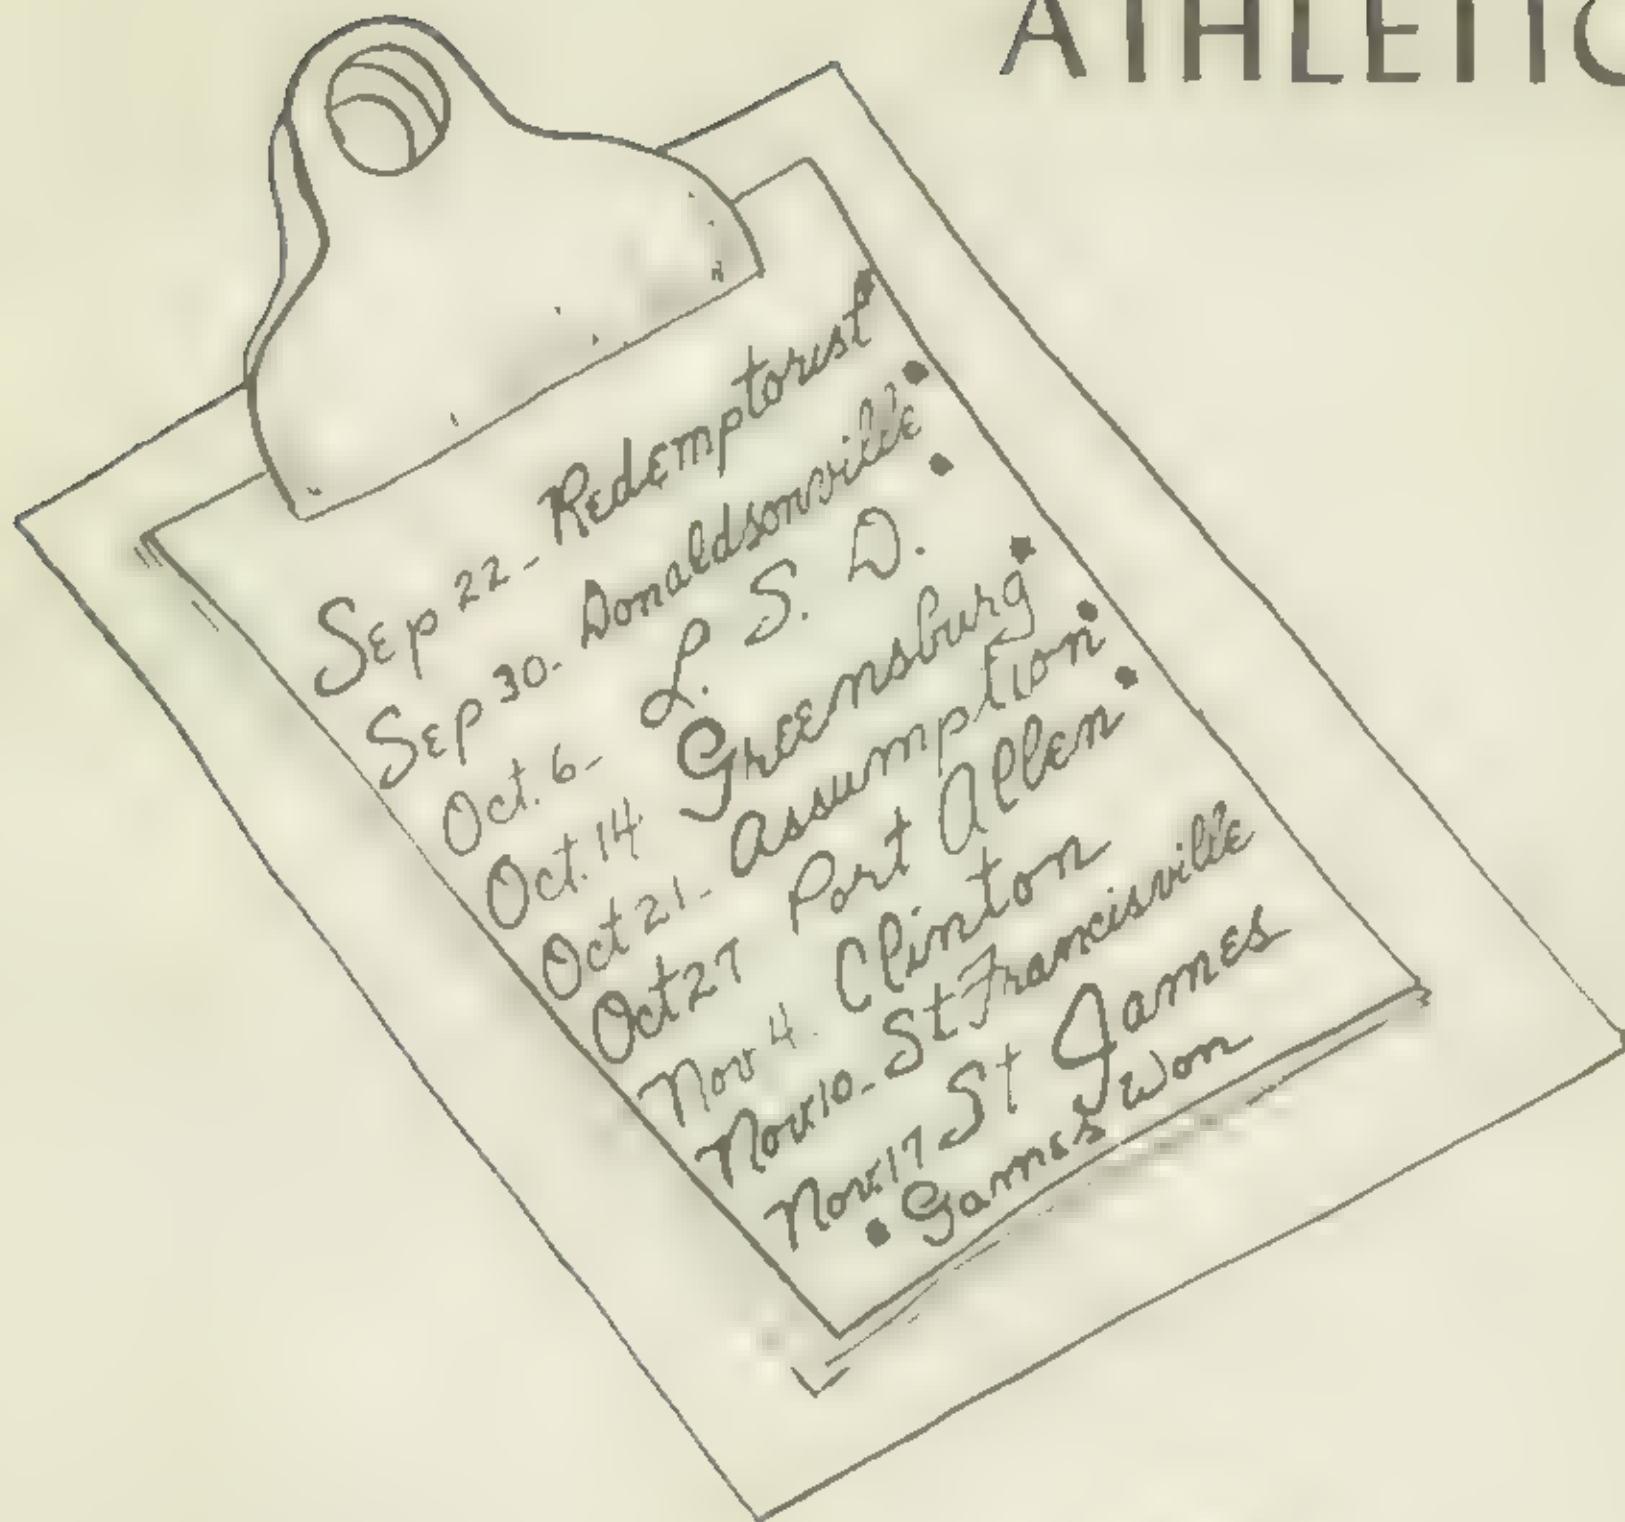 ATHLETIC
Sep 22 - Redemptorist •
Sep 30 - Donaldsonville •
Oct. 6 - L. S. D. •
Oct. 14 Greensburg •
Oct 21 - Assumption •
Oct 27 Port Allen •
Nov 4. Clinton
Nov. 10 - St Francisville
Nov. 17 St James
• Games Won